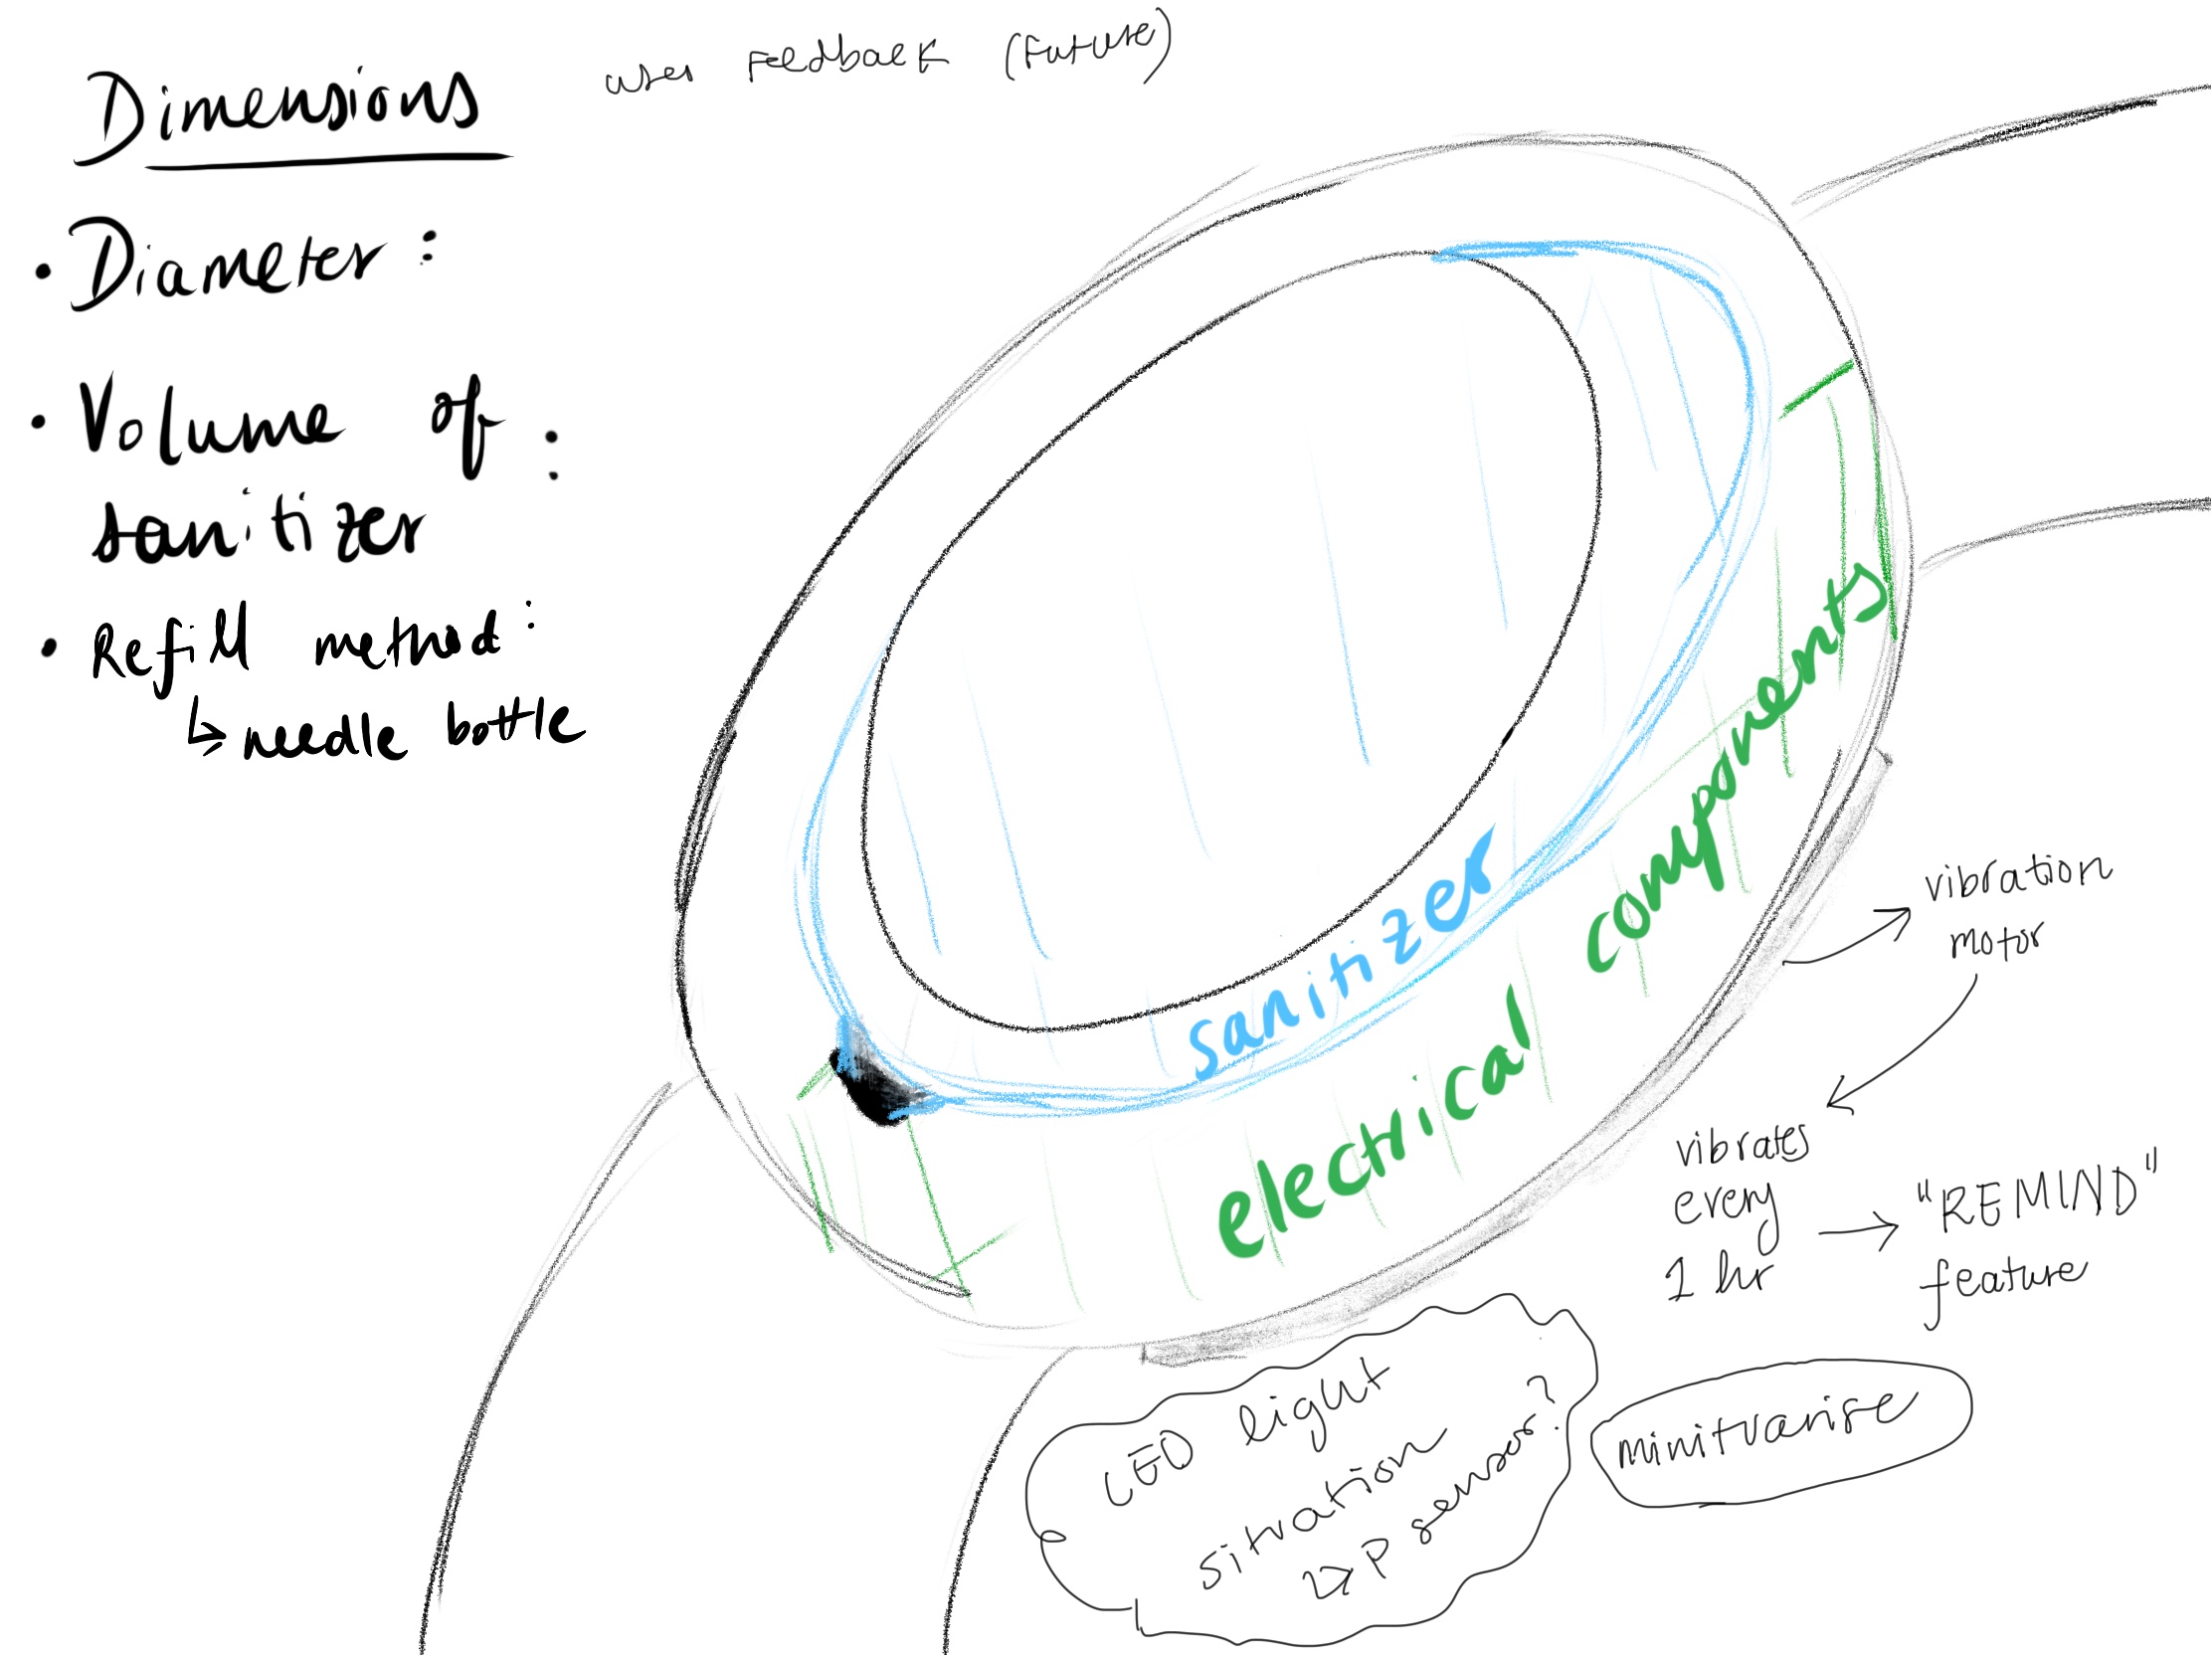 Dimensions
user Feedback (Future)
• Diameter :
• Volume of :
sanitizer
• Refill method :
↳ needle bottle
sanitizer
electrical components
vibration
motor
vibrates
every
1 hr
→ "REMIND"
feature
LED light
situation
↳ P sensor?
minituarise